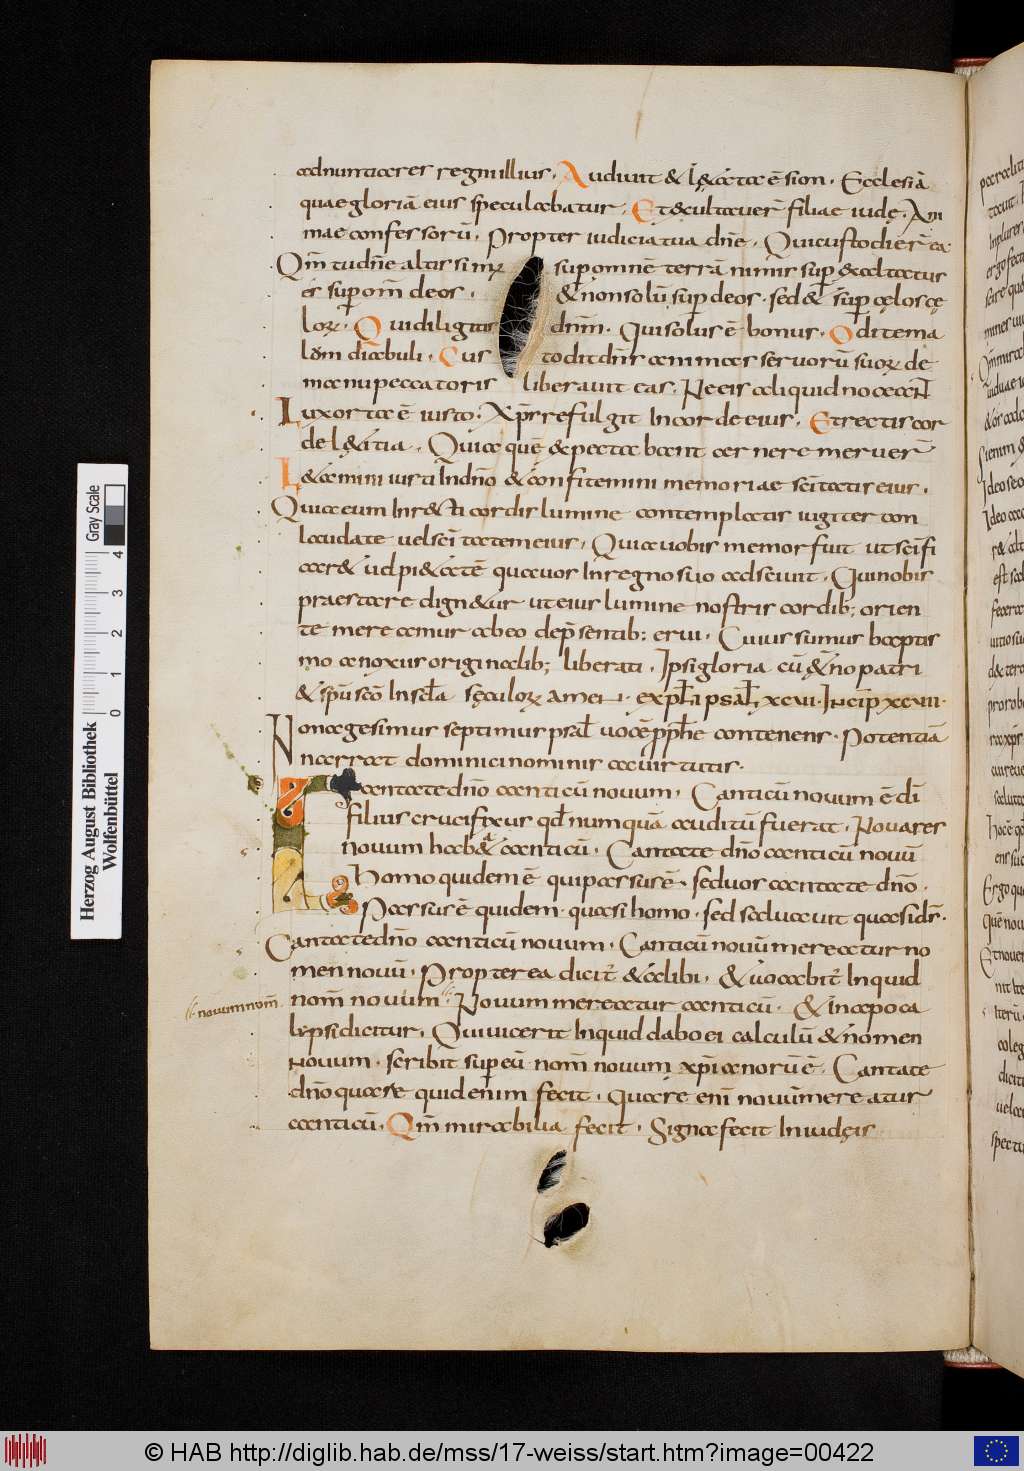 adnuntiares regni illius. Audiuit & l&ata ē sion. Ecclesiā
quae gloriā eius speculabatur. Et exultauer̄ filiae iudę. Ani
mae confessorū. Propter iudicia tua dn̄e. Qui custodier̄ ea
Qm̄ tu dn̄e altissimꝰ sup omnē terrā nimis sup exaltatus
és sup om̄ deos. & non solū sup deos. sed & sup cęlos cę
loꝝ. Qui diligitis dn̄m. Qui solus ē bonus. Odite ma
lum diabuli. Custodit dn̄s animas seruorū suoꝝ de
manu peccatoris liberauit eas. Ne eis aliquid noceaN̄
Lux orta ē iusto. Xp̄s refulgit In corde eius. Et rectis cor
de l&itia. Quia quē expectabant cernere meruer̄
L&amini iusti In dn̄o & confitemini memoriae sc̄itatis eius.
Quia eum Inr&ti cordis lumine contemplatis iugiter con
laudate uel sc̄itatem eius. Quia uobis memor fuit ut sc̄ifi
car& ... quauos In regno suo adsciuit. Qui nobis
praestare dign&ur ut eius lumine nostris cordib; orien
te mereamur abeo de p̄sentib; erui. Cuius sumus baptis
mo a noxus originalib; liberati. Ipsi gloria cū &̄no patri
& sp̄u sc̄o In sc̄la sęculoꝝ amen. expł ... psał xcvi. Incip̄ xcvii.
Nonagesimus septimus psał uocē pph̄e contenens. Potentiā
Narrat dominici nominis ac uirtutis.
Cantate dn̄o canticū nouum. Canticū nouum ē dī
filius crucifixus qđ numquā auditū fuerat. Noua res
nouum habeat canticū. Cantate dn̄o canticū nouū
Homo quidem ē qui passus ē. sed uos cantate dn̄o.
Passus ē quidem quasi homo. sed saluauit quasi ds̄.
Cantate dn̄o canticū nouum. Canticū nouū mereatur no
men nouū. Propterea dicit̄ & alibi. & uocabit̄ Inquid
nom̄ nouum Nouum mereatur canticū. & In apoca
lypsi dicitur. Qui uicerit Inquid dabo ei calculū & nomen
nouum. scribit sup eū nom̄ nouum xp̄ianorū ē. Cantate
dn̄o quare quid enim fecit. Quare enī nouū mereatur
canticū. Qm̄ mirabilia fecit. Signa fecit In iudęis
nouum nom̄.
Herzog August Bibliothek
Wolfenbüttel
Gray Scale
0 1 2 3 4
© HAB http://diglib.hab.de/mss/17-weiss/start.htm?image=00422